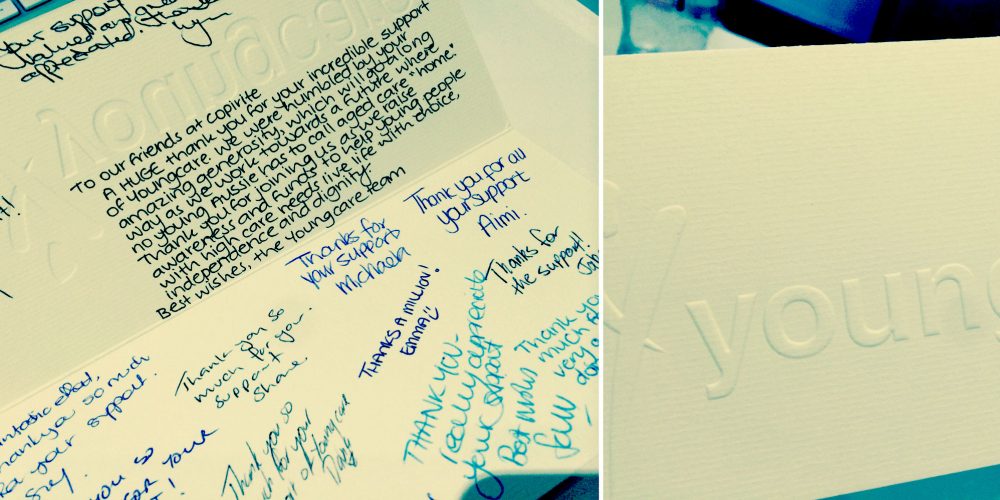 your support
valued and
appreciated!
To our friends at copirite
A HUGE thank you for your incredible support
of youngcare. We were humbled by your
amazing generosity, which will go along
way as we work towards a future where
no young Aussie has to call aged care "home".
Thank you for joining us as we raise
awareness and funds to help young people
with high care needs live life with choice,
independence and dignity.
Best wishes, the youngcare team
Thank you for all
your support
Aimi.
Thanks for
your support
Michaela
Thanks for
the support!
THANKS A MILLION!
EMMA
Thank you so
much for your
support
Shane
THANK YOU -
really appreciate
your support
Best wishes
Thank you
much
very
day
effort,
thank you so much
your support.
YOU SO
FOR YOUR
Thank you so
for your
of Youngcare
young